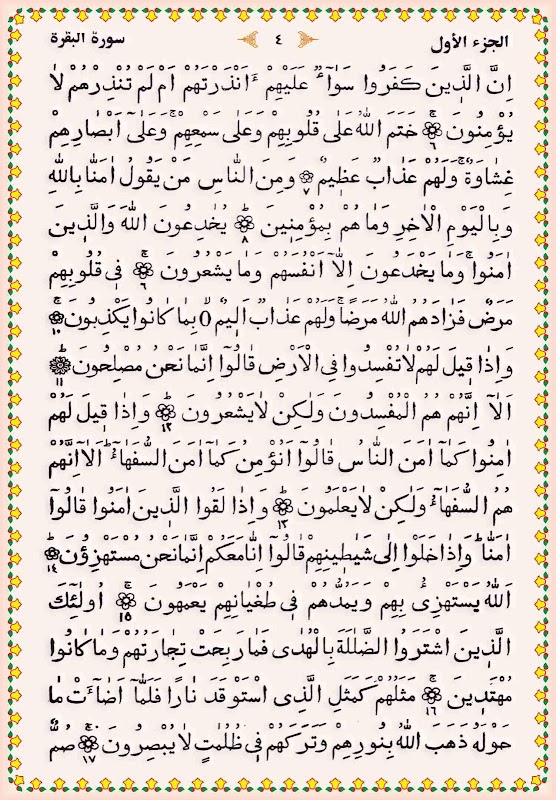 الجزء الأول ٤ سورة البقرة
اِنَّ الَّذِيْنَ كَفَرُوا سَوَآءٌ عَلَيْهِمْ ءَاَنْذَرْتَهُمْ اَمْ لَمْ تُنْذِرْهُمْ لَا
يُؤْمِنُوْنَ ۶ خَتَمَ اللّٰهُ عَلٰى قُلُوْبِهِمْ وَعَلٰى سَمْعِهِمْ وَعَلٰٓى اَبْصَارِهِمْ
غِشَاوَةٌ وَلَهُمْ عَذَابٌ عَظِيْمٌ ۷ وَمِنَ النَّاسِ مَنْ يَقُوْلُ اٰمَنَّا بِاللّٰهِ
وَبِالْيَوْمِ الْاٰخِرِ وَمَا هُمْ بِمُؤْمِنِيْنَ ۸ يُخٰدِعُوْنَ اللّٰهَ وَالَّذِيْنَ
اٰمَنُوْا وَمَا يَخْدَعُوْنَ اِلَّآ اَنْفُسَهُمْ وَمَا يَشْعُرُوْنَ ۹ فِىْ قُلُوْبِهِمْ
مَرَضٌ فَزَادَهُمُ اللّٰهُ مَرَضًا وَلَهُمْ عَذَابٌ اَلِيْمٌ بِمَا كَانُوْا يَكْذِبُوْنَ ۱۰
وَاِذَا قِيْلَ لَهُمْ لَا تُفْسِدُوْا فِى الْاَرْضِ قَالُوْٓا اِنَّمَا نَحْنُ مُصْلِحُوْنَ ۱۱
اَلَآ اِنَّهُمْ هُمُ الْمُفْسِدُوْنَ وَلٰكِنْ لَا يَشْعُرُوْنَ ۱۲ وَاِذَا قِيْلَ لَهُمْ
اٰمِنُوْا كَمَآ اٰمَنَ النَّاسُ قَالُوْٓا اَنُؤْمِنُ كَمَآ اٰمَنَ السُّفَهَآءُ اَلَآ اِنَّهُمْ
هُمُ السُّفَهَآءُ وَلٰكِنْ لَا يَعْلَمُوْنَ ۱۳ وَاِذَا لَقُوا الَّذِيْنَ اٰمَنُوْا قَالُوْٓا
اٰمَنَّا وَاِذَا خَلَوْا اِلٰى شَيٰطِيْنِهِمْ قَالُوْٓا اِنَّا مَعَكُمْ اِنَّمَا نَحْنُ مُسْتَهْزِءُوْنَ ۱۴
اَللّٰهُ يَسْتَهْزِئُ بِهِمْ وَيَمُدُّهُمْ فِىْ طُغْيَانِهِمْ يَعْمَهُوْنَ ۱۵ اُولٰٓئِكَ
الَّذِيْنَ اشْتَرَوُا الضَّلٰلَةَ بِالْهُدٰى فَمَا رَبِحَتْ تِجَارَتُهُمْ وَمَا كَانُوْا
مُهْتَدِيْنَ ۱۶ مَثَلُهُمْ كَمَثَلِ الَّذِى اسْتَوْقَدَ نَارًا فَلَمَّآ اَضَآءَتْ مَا
حَوْلَهٗ ذَهَبَ اللّٰهُ بِنُوْرِهِمْ وَتَرَكَهُمْ فِىْ ظُلُمٰتٍ لَّا يُبْصِرُوْنَ ۱۷ صُمٌّ